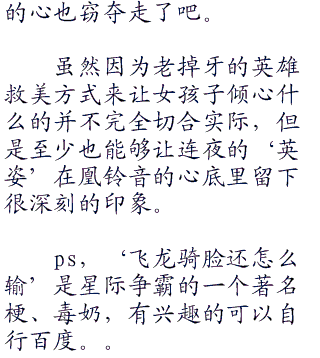 的心也窃夺走了吧。
虽然因为老掉牙的英雄
救美方式来让女孩子倾心什
么的并不完全切合实际，但
是至少也能够让连夜的‘英
姿’在凰铃音的心底里留下
很深刻的印象。
ps，‘飞龙骑脸还怎么
输’是星际争霸的一个著名
梗、毒奶，有兴趣的可以自
行百度。。